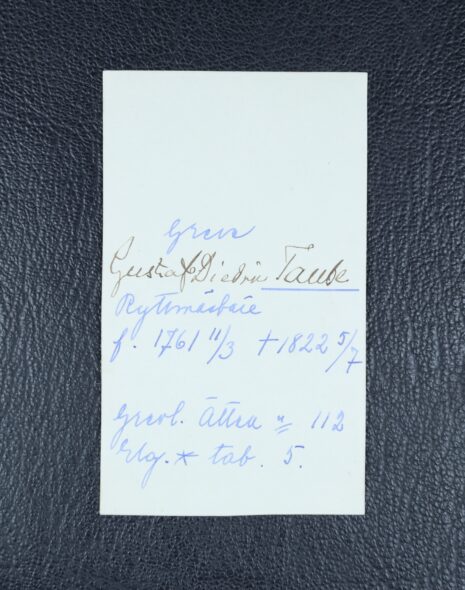 Greve
Gustaf Diedric Taube
Ryttmästare
f. 1761 11/3 +1822 5/7
Grevl. Ätten № 112
Elg. * tab. 5.